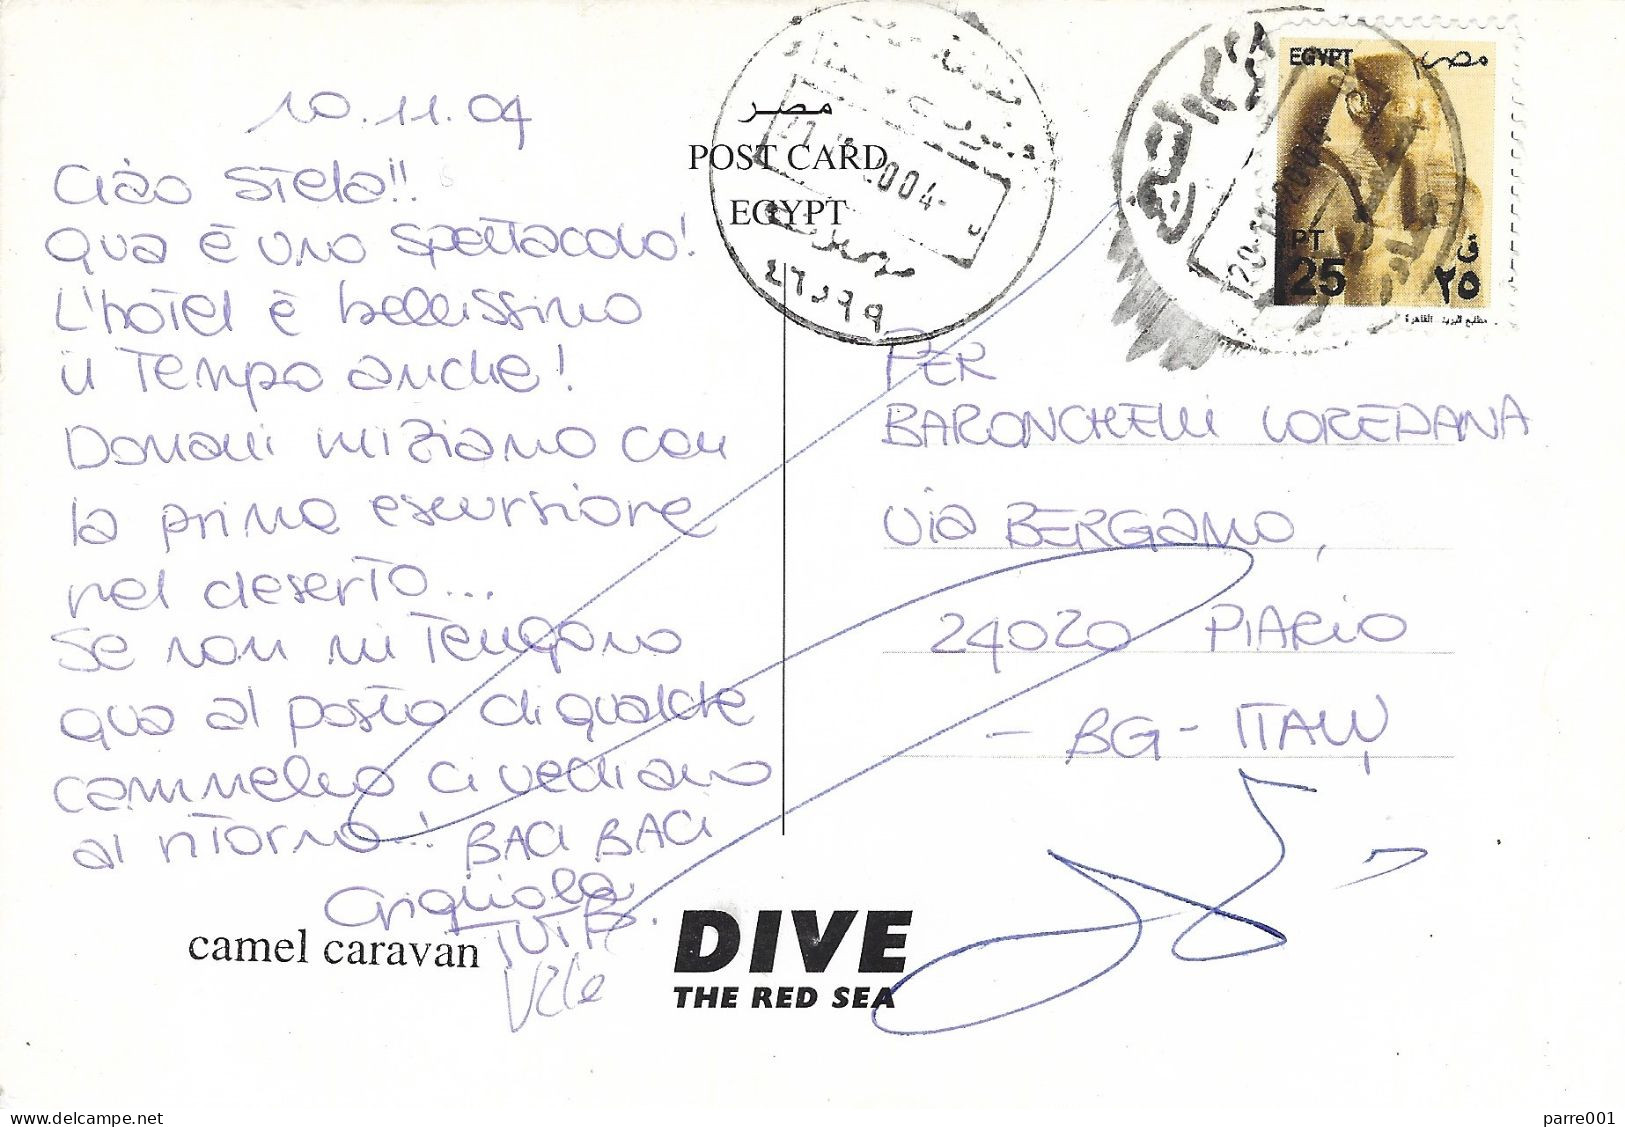 10.11.04
Ciao Stela!!
Qua è uno spettacolo!
L'hotel è bellissimo
il tempo anche!
Domani iniziamo con
la prima escursione
nel deserto...
Se non mi tengono
qua al posto di qualche
cammello ci vediamo
al ritorno! BACI BACI
camel caravan
مصر
POST CARD
EGYPT
2004
EGYPT مصر
PT
25
ق
٢٥
مطابع البريد - القاهرة
PER
BARONCHELLI LOREDANA
Via BERGAMO,
24020 PIARIO
- BG - ITALY
DIVE
THE RED SEA
delcampe.net
parre001